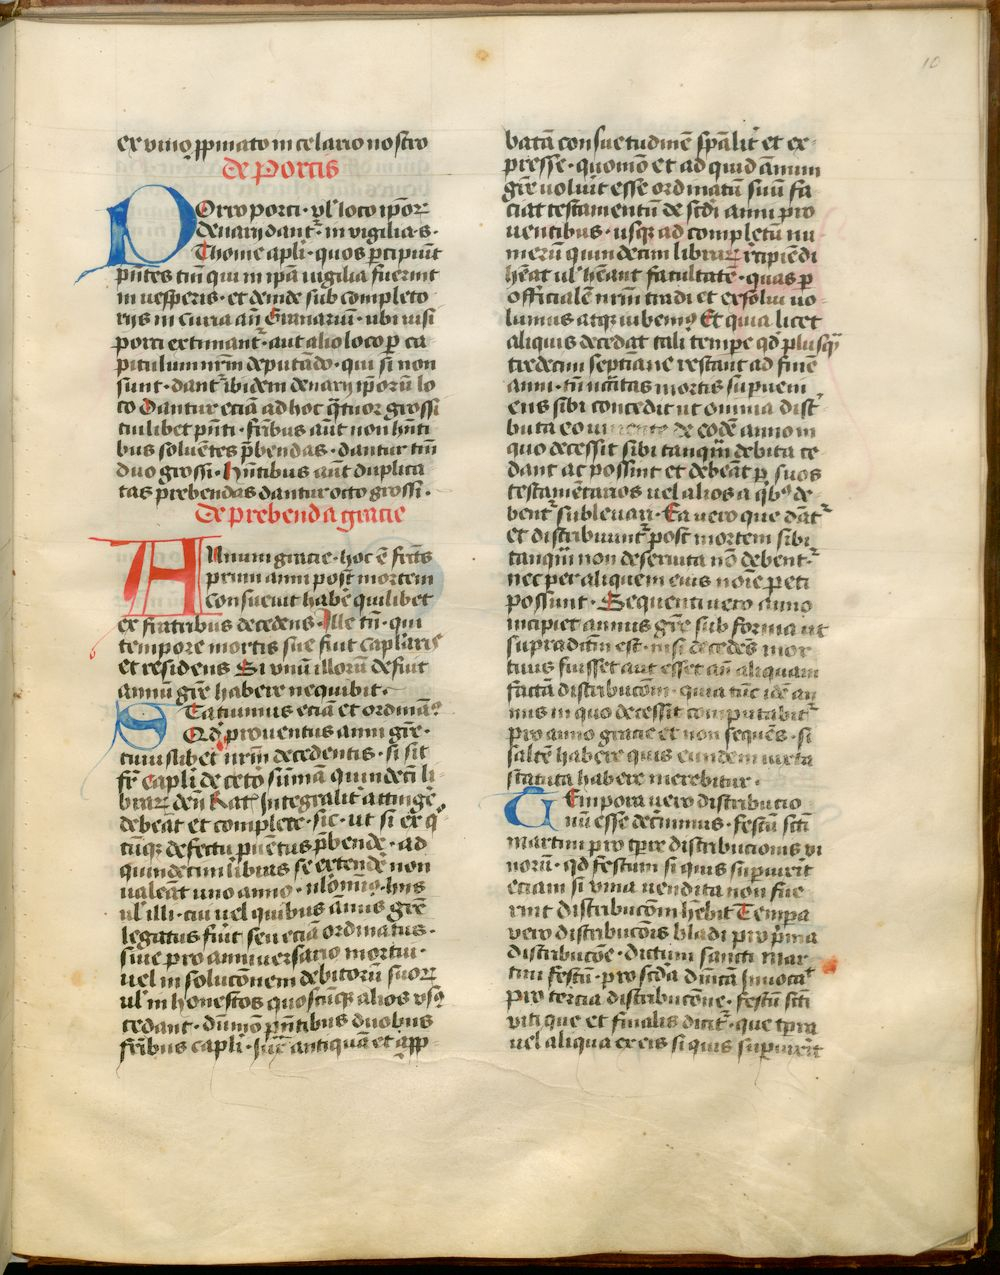 10
ex vino ppinato in celario nostro
de Porcis
POrro porci· vl' loco ipoꝝ
denarij dant᷑· in vigilia· s·
Thome apli· quos percipiunt
pn̄tes tm̄ qui in ip̄a vigilia fuerint
in vesperis· et deinde sub completo
rijs in curia an̄ Granariū· ubi visi
porci extimant᷑· aut alio loco per ca
pitulum nr̄m deputādo· qui si non
sunt· dant᷑ ibidem denarij ip̄orū lo
co Dantur eciā ad hoc q̄tuor grossi
cuilibet pn̄ti· fr̄ibus aūt non hn̄ti
bus soluētes p̄bendas· dantur tm̄
duo grossi· hn̄tibus aūt duplica
tas prebendas dantur octo grossi·
de prebenda gracie
ANnum gracie· hoc ē fr̄cts
primi anni post mortem
consueuit habē quilibet
ex fratribus decedens· Ille tn̄· qui
tempore mortis sue fuit capl'aris
et residens Si vnū illorū defuit
annū gr̄e habere nequibit·
STatuimus eciā et ordinam᷒
Qd' prouentus anni gr̄e·
cuiuslibet nr̄m decedentis· si sit
fr̄ capl'i de ceto sūmā quindeci li
braꝝ den̄ Integralit᷑ attingē
debeāt et complete· sic· ut si ex q
cūq defectu puētus p̄bende· ad
quindecim libras se extendē non
valeāt uno anno· hiis
vl' illi· cui vel quibus ānus gr̄e
legatus fūit seu eciā ordinatus·
siue pro anniuersario mortui·
vel in solucōnem debitorū suoꝝ
vl' in honestos quoscūq alios vsq
cedant· dūmō pn̄tibus duobus
fr̄ibus capl'i· Iux̄ antiqua et app
batā consuetudinē sp̄alit᷑ et ex
presse· quomō et ad quid ānum
gr̄e voluit esse ordinatū suū fa
ciat testamentū de sc̄di anni pro
uentibus· usq ad completū nu
merū quindecim libraꝝ recipiēdi
hēat vl' hēant facultatē· quas per
officialē nr̄m tradi et exsolui vo
lumus atq iubem᷒ Et quia licet
aliquis decedat tali tempe qd' plusq̄
tredecim septiane restant ad finē
anni· tn̄ mortis supueni
ens sibi concedit ut omnia dist᷑
buta eo de eodē anno in
quo decessit sibi tanq̄m debita ce
dant ac possint et debeāt per suos
testamētarios vel alios a qb᷒ de
bent᷑ subleuari· Ea vero que dāt᷑
et distribuunt᷑ post mortem sibi
tanq̄m non deseruita nō debent᷑
nec per aliquem eius noīe peti
possunt· Sequenti vero anno
incipiet annus gr̄e sub forma ut
supradictm̄ est· nisi decedēs mor
tuus fuisset aut esset an̄ aliquam
factā distribucōm· quia tūc idē an
nus in quo decessit computabit᷑
pro anno gracie et non sequēs· si
saltē habere quis eundem iuxta
statuta habere merebitur·
TEmpora vero distributio
nū esse decnimus· festū scti
martini pro tpre distribucionis vi
norū· qd festum si quis supuixit
eciam si vina vendita non fue
rint distribucōm hēbit Tempa
vero distribucōis bladi pro p̄ma
distribucōe· dictum sancti Mar
tini festū· pro scda dn̄icā Inuocat᷑
pro tercia distribucōne· festū scti
viti que et finalis dicit᷑· que tpra
vel aliqua ex eis si quis supuixit